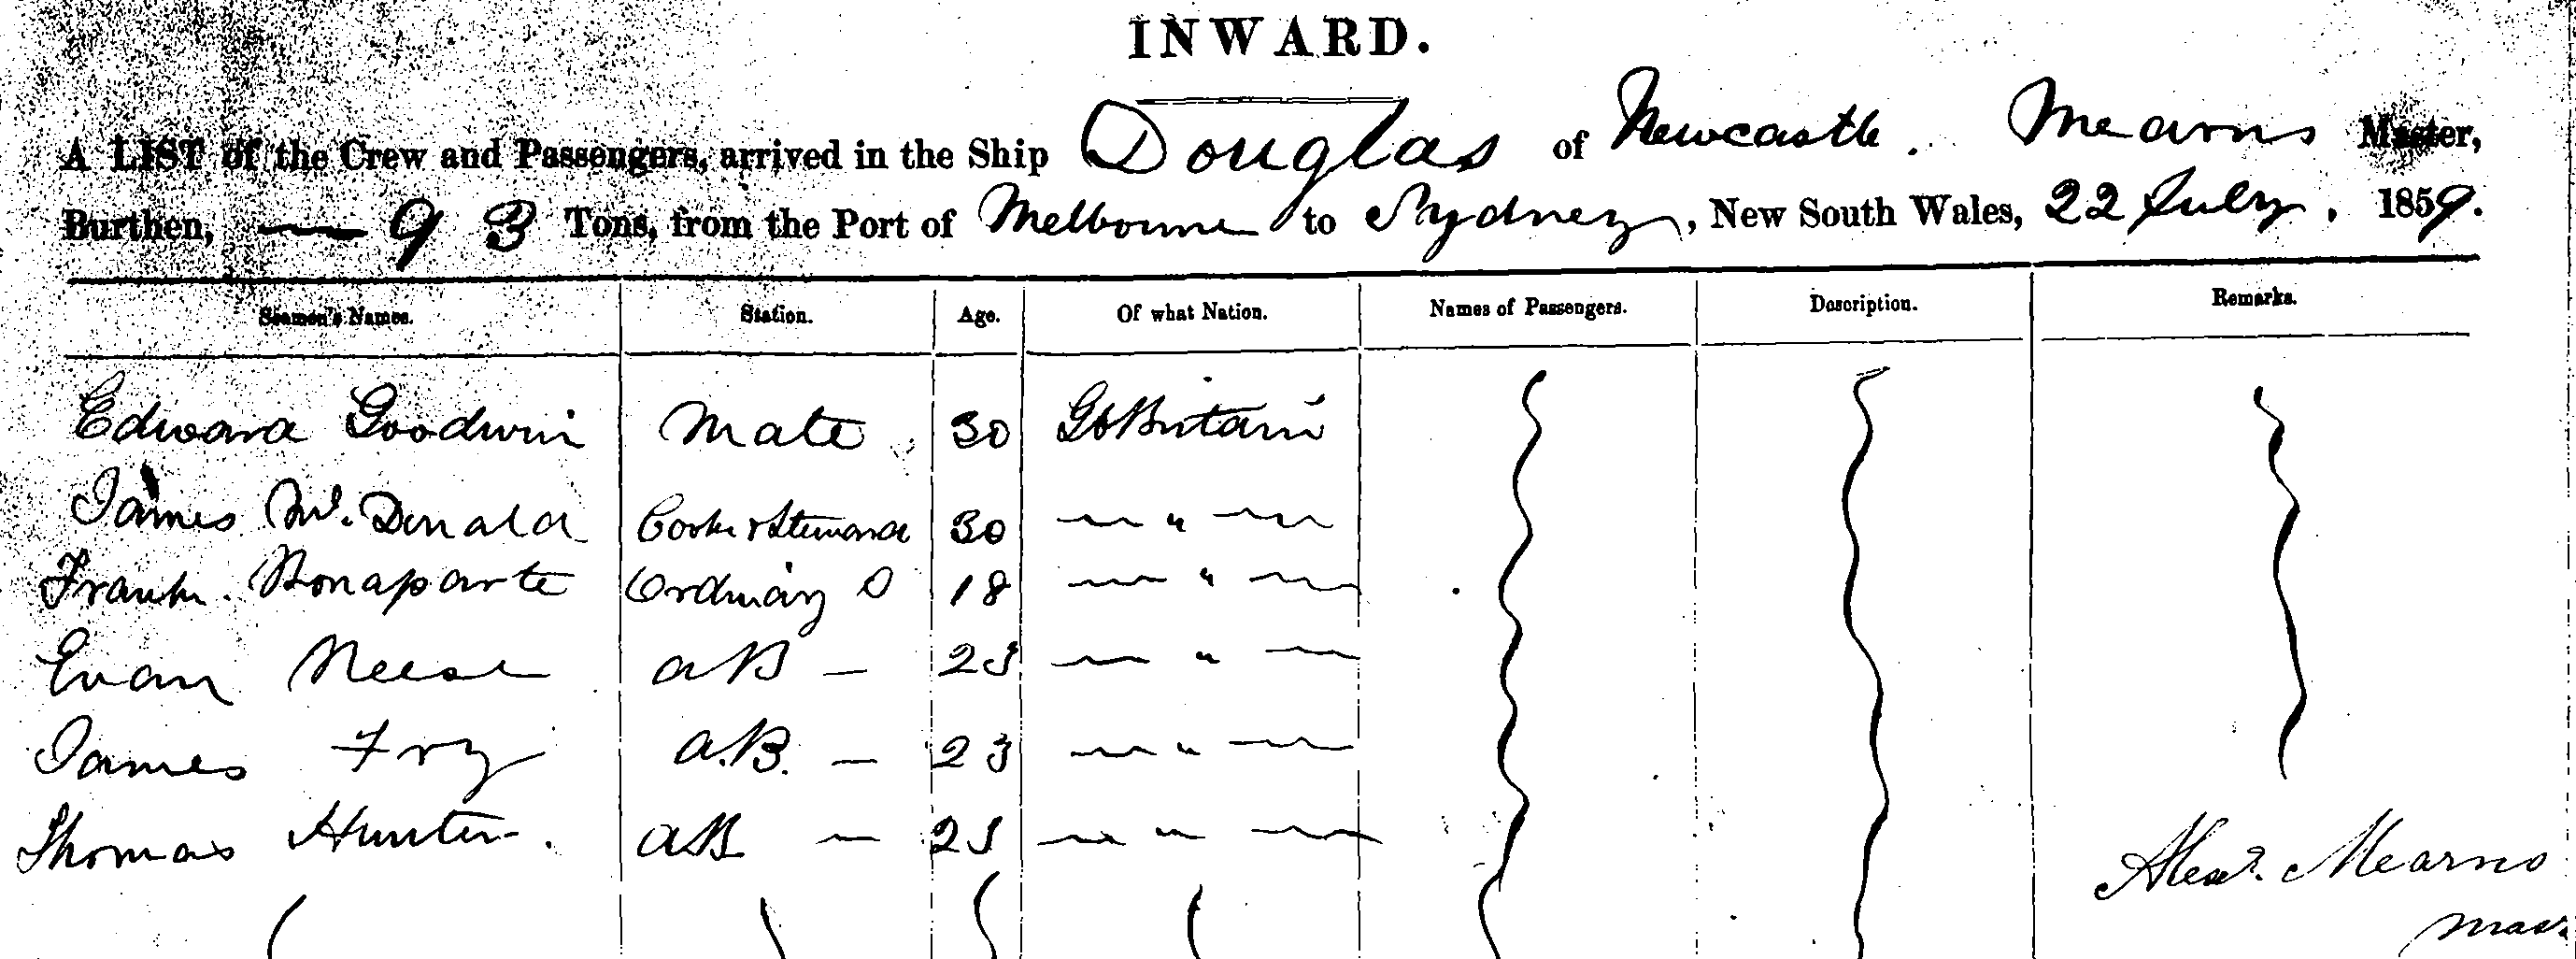 INWARD.
A LIST of the Crew and Passengers, arrived in the Ship Douglas of Newcastle. Mearns Master,
Burthen, — 93 Tons, from the Port of Melbourne to Sydney, New South Wales, 22 July, 1859.
Seamen's Names. Station. Age. Of what Nation. Names of Passengers. Description. Remarks.
Edward Goodwin Mate 30 Gt Britain
James Mc. Donald Cook & Steward 30 — " —
Frank. Bonaparte Ordinary S 18 — " —
Evan Neese AB — 25 — " —
James Fry A.B. — 23 — " —
Thomas Hunter. AB — 25 — " —
Alexr. Mearns
Mas.